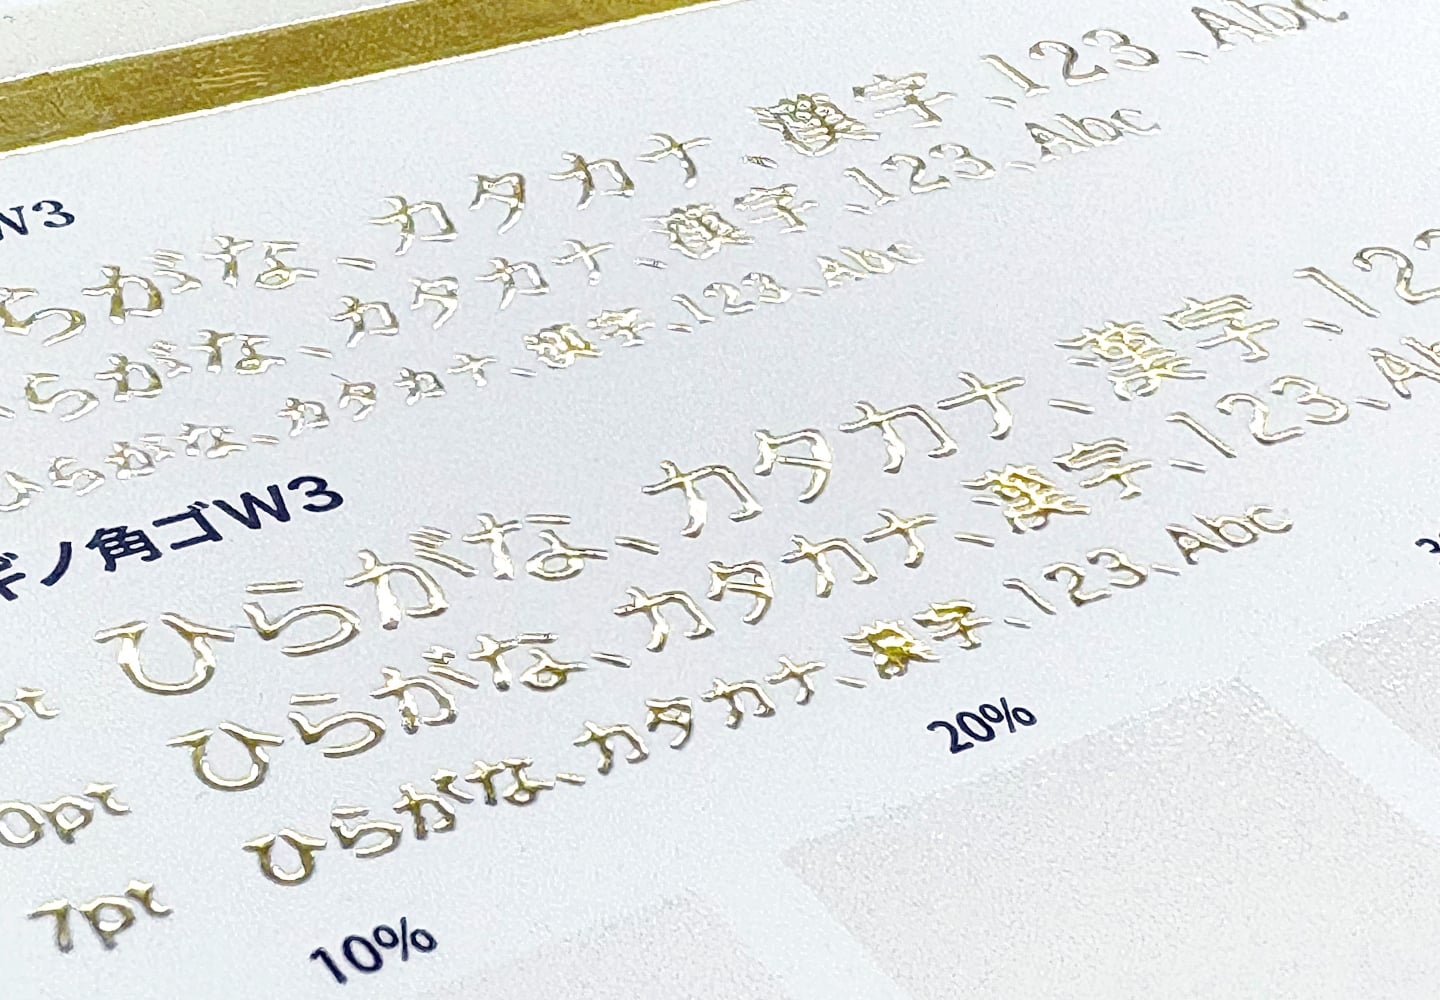 W3
らがな、カタカナ、漢字、123、Abc
らがな、カタカナ、漢字、123、Abc
ひらがな、カタカナ、漢字、123、Abc
ギノ角ゴW3
ひらがな、カタカナ、漢字、12
pt ひらがな、カタカナ、漢字、123、Ab
0pt ひらがな、カタカナ、漢字、123、Abc
7pt
10%
20%